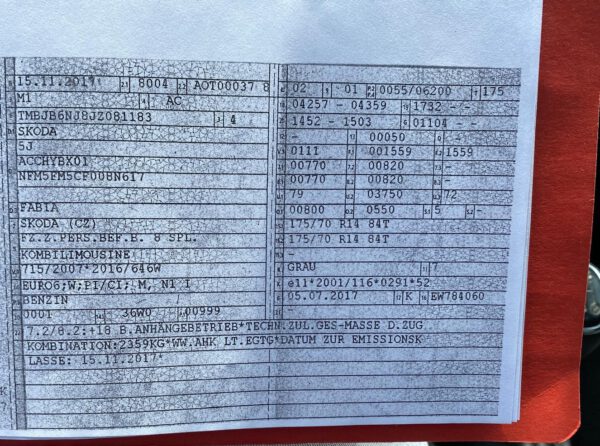 15.11.2017 2.1 8004 2.2 AOT00037 8
M1 4 AC
TMBJB6NJ8JZ081183 3 4
SKODA
5J
ACCHYBX01
NFM5FM5CF008N617
FABIA
SKODA (CZ)
FZ.Z.PERS.BEF.B. 8 SPL.
KOMBILIMOUSINE
715/2007*2016/646W
EURO6;W;PI/CI; M, N1 I
BENZIN
0001 36W0 00999
02 01 P.2 P.4 0055/06200 T 175
04257 - 04359 1732 - -
1452 - 1503 01104 - -
- 00050 -
0111 001559 1559
00770 00820 -
00770 00820 -
79 03750 72
00800 0550 5 -
175/70 R14 84T
175/70 R14 84T
-
GRAU 7
e11*2001/116*0291*52
05.07.2017 17 K 16 EW784060
7.2/8.2:+18 B.ANHÄNGEBETRIEB*TECHN.ZUL.GES-MASSE D.ZUG
KOMBINATION:2359KG*WW.AHK LT.EGTG*DATUM ZUR EMISSIONSK
LASSE: 15.11.2017*